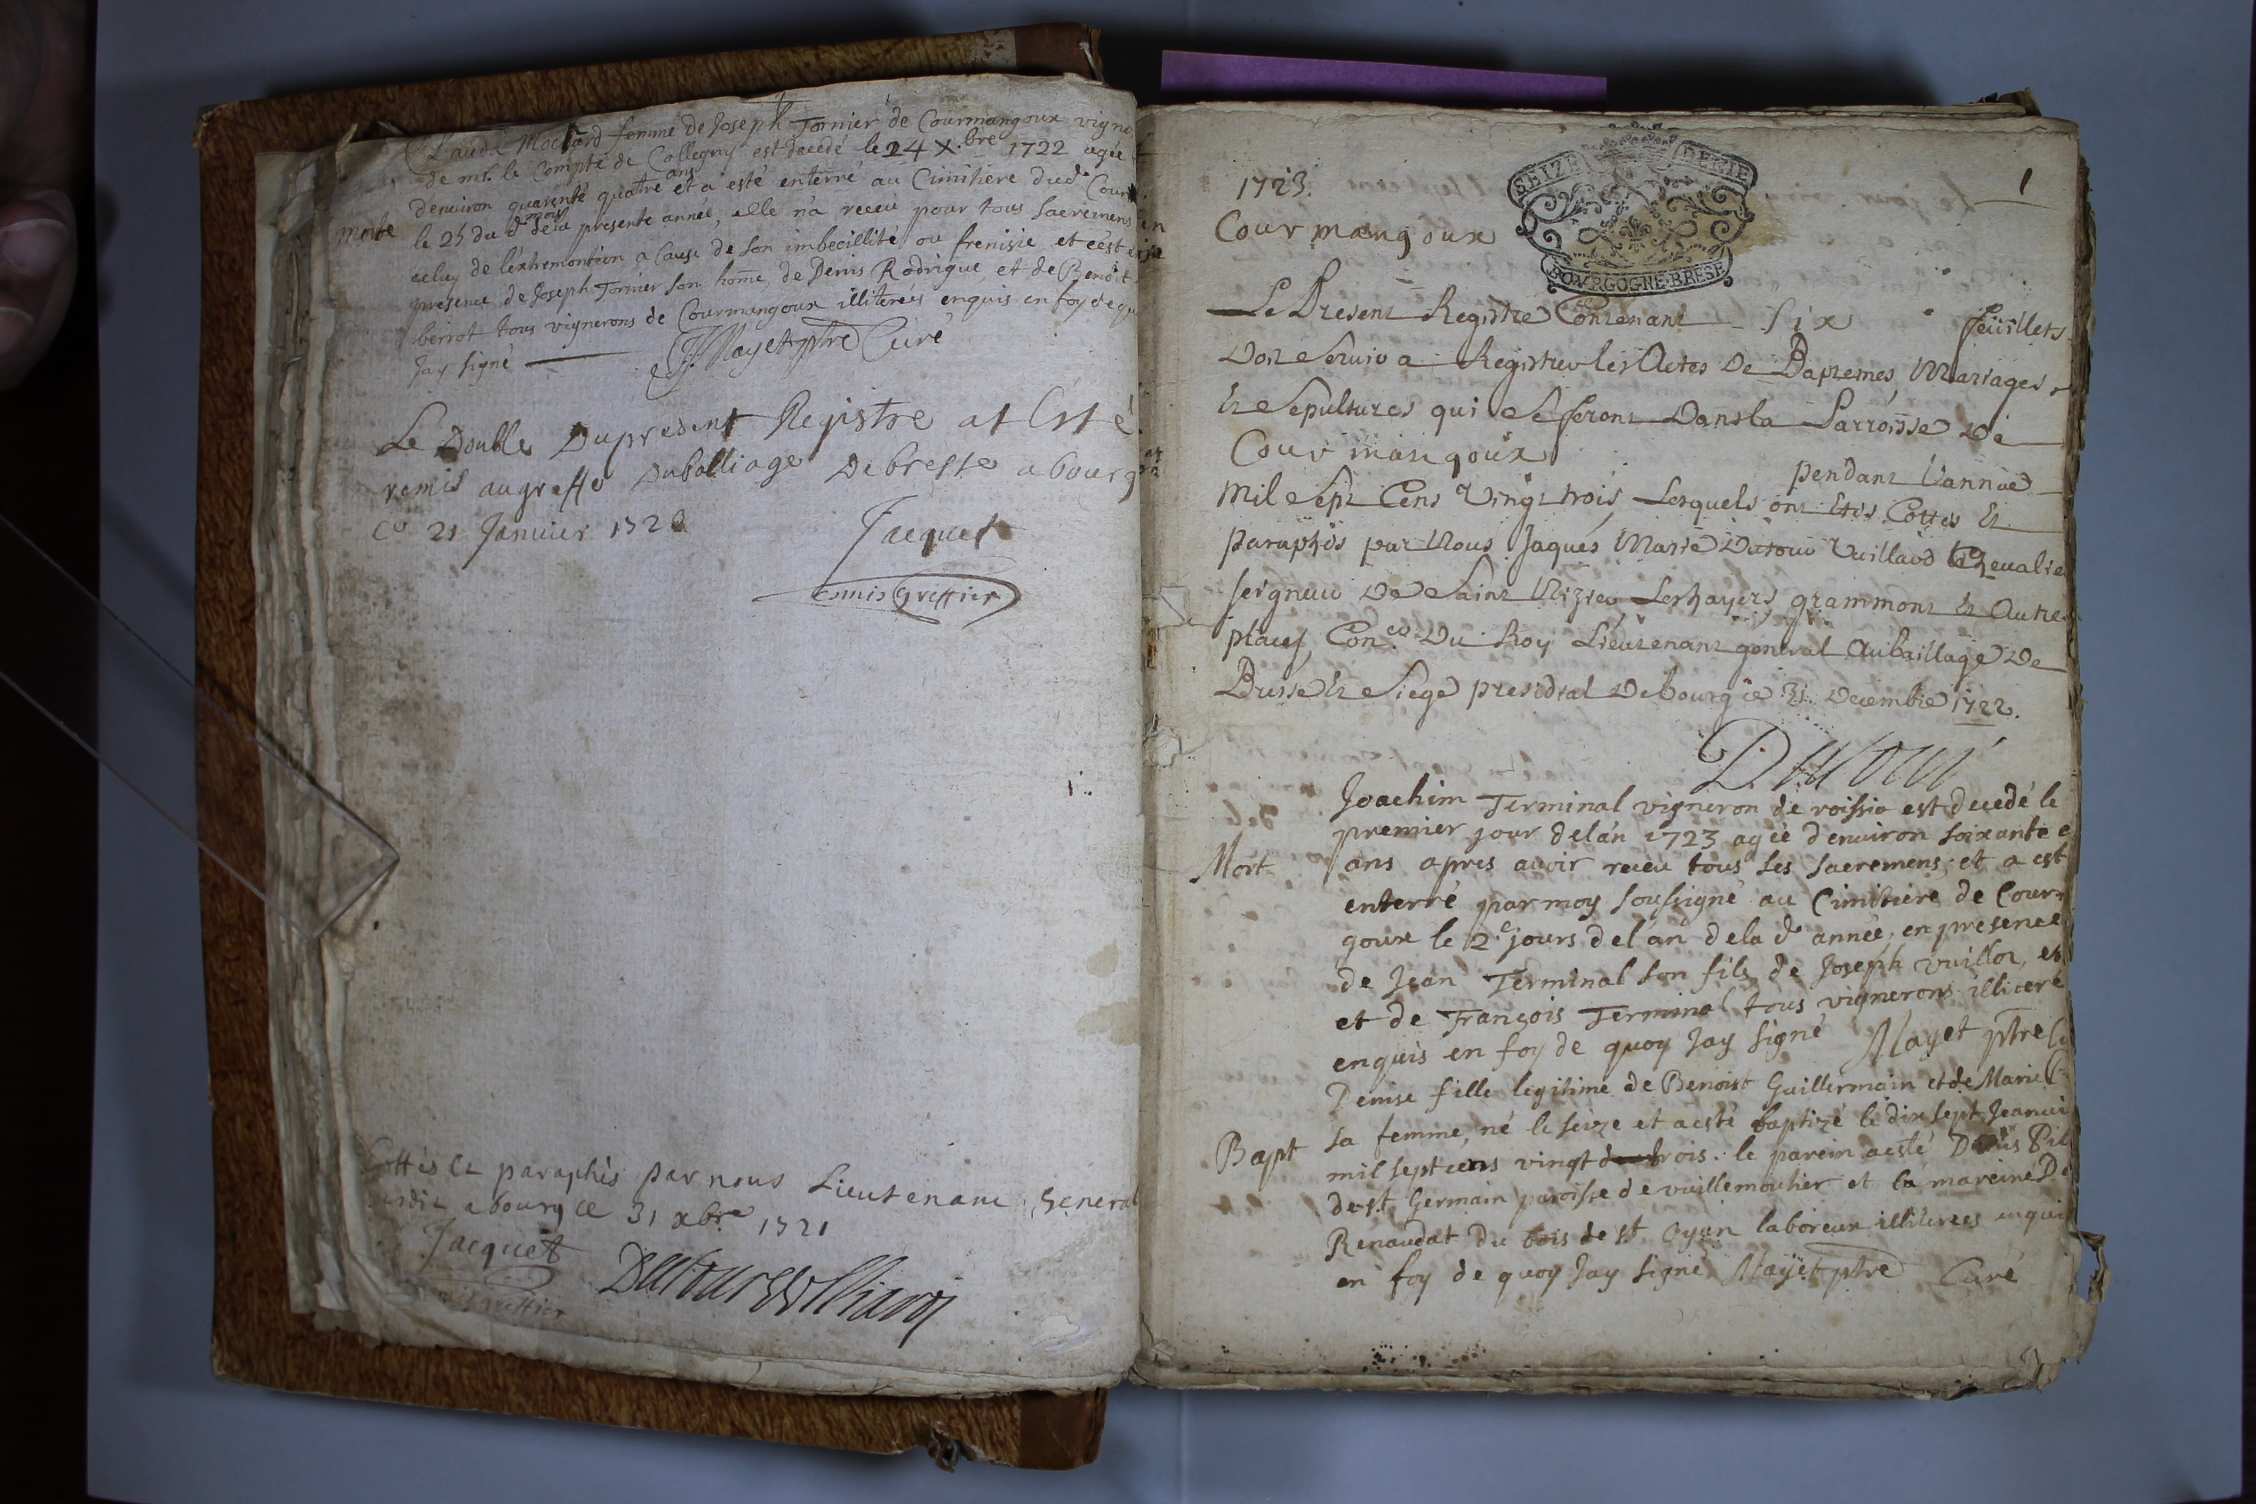 Claudá Mochard femme de Joseph Tornier de Courmangoux vigne
de mr. le Compte de Collegny est decedé le 24 X.bre 1722 agée
d'environ quarente quatre ans et a esté enterré au Cimitiere dud. Cour
morte
le 25 du d. mois de la presente année, elle n'a receu pour tous sacremens
celuy de l'extremontion a cause de son imbecillité ou frenisie et cest
presence de Joseph Tornier son home de Denis Rodrigue et de Benoit
berrot tous vignerons de Courmangoux illiterés enquis en foy de qu
Jay signé Mayet ptre Curé
Le Double Dupresent Registre at Esté
remis augreffe Duballiage Debresse abourg
ce 21 Janvier 1723
Jacquet
Comis Greffier
Cottés Et paraphés par nous Lieutenant General
abourg ce 31 xbre 1721
Jacquet
greffier
1723.
1
SEIZE DENIE
BOURGOGNE BRESE
Courmangoux
Le Present Registre Contenant Six feüillets
Doit Servir a Registrer les Actes De Baptemes, Mariages
Et Sepultures qui Se feront Dans la Parroisse De
Courmangoux pendant L'année
Mil Sept Cens Vingt trois, Lesquels ont Etés Cottés Et
Paraphés par Nous Jaques Marie
Seigneur De Saint Nizier Leshayes grammont Et Autre
places, Con.er Du Roy Lieutenant general Aubaillage De
Bresse Et Siege presidial Debourg ce 31. Decembre 1722.
Joachim Terminal vigneron de roissia est decedé le
premier jour delan 1723 agée d'environ soixante e
Mort
ans apres avoir receu tous ses sacremens et a est
enterré par moy soussigné au Cimitiere de Cour
goux le 2e jours delan dela d. année, en presence
de Jean Terminal son fils de Joseph vuillot, et
et de François Terminal tous vignerons illitere
enquis en foy de quoy Jay signé Mayet ptre
Denise fille legitime de Benoist Guillermain et de Marie
Bapt
sa femme, né le seize et aesté baptizé le dix sept Jeanvi
mil sept cens vingt trois. le parein aesté Denis
de st. Germain paroisse de vuillemoutier et la mareine De
Renaudat du bois de st Oyen laboreux illiterees enqui
en foy de quoy Jay signé Mayet ptre Curé